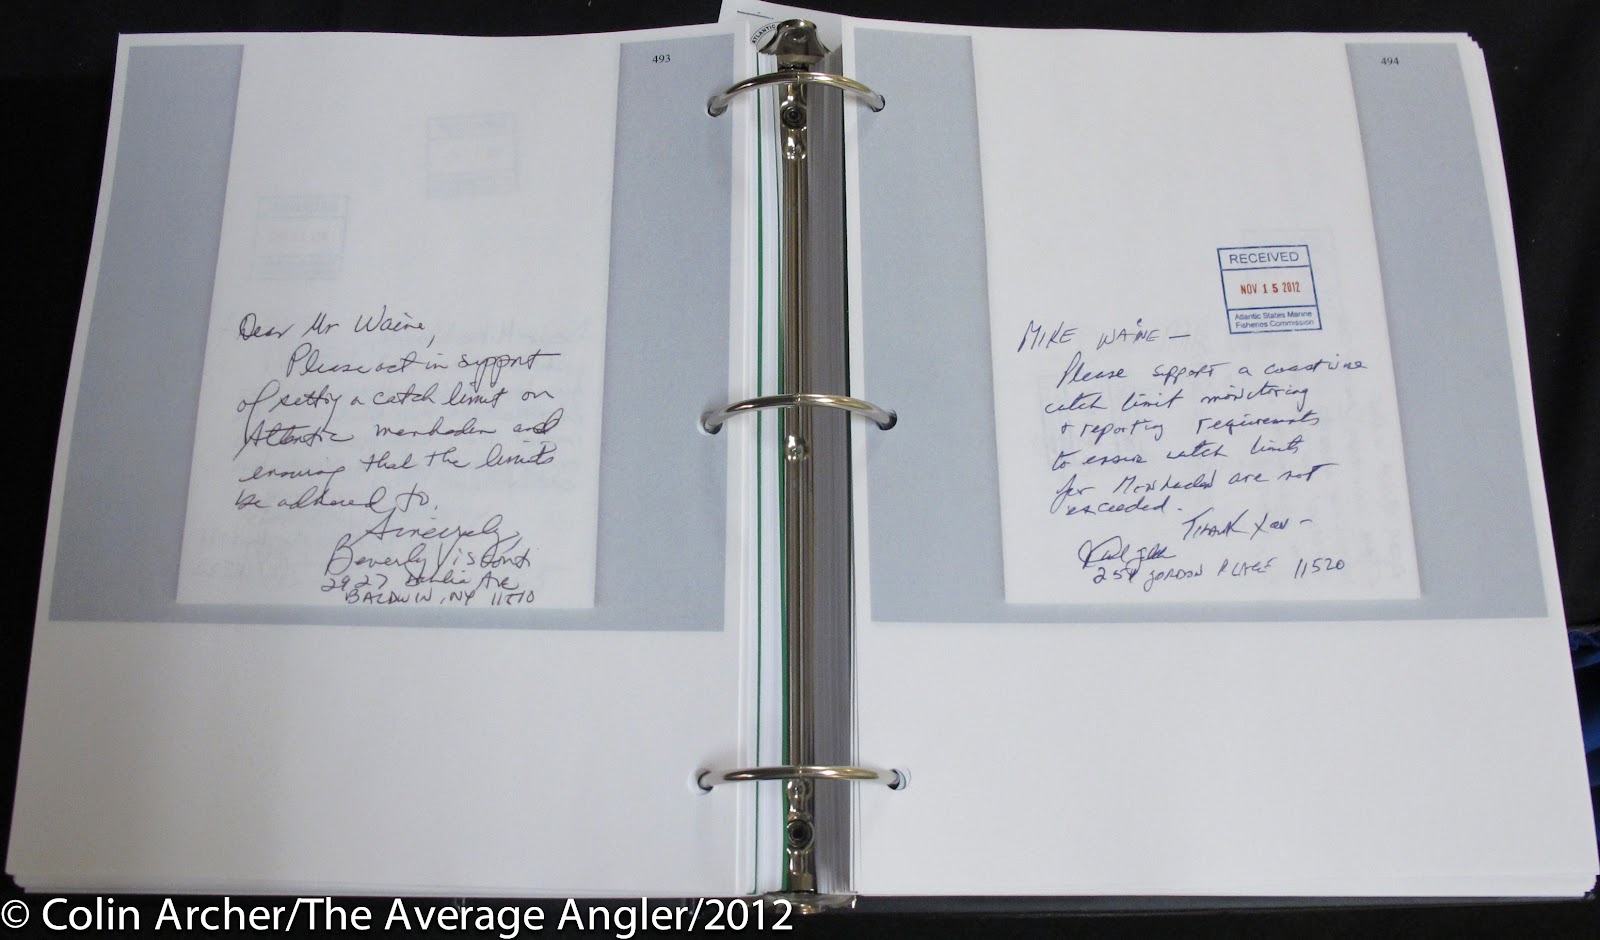 493
Dear Mr Waine,
Please act in support
of setting a catch limit on
Atlantic menhaden and
ensuring that the limits
be adhered to.
Sincerely,
Beverly Visconti
2927 Ave
BALDWIN, NY 11510
ATLANTIC
494
RECEIVED
NOV 15 2012
Atlantic States Marine
Fisheries Commission
MIKE WAINE —
Please support a coastwide
catch limit monitoring
+ reporting requirements
to ensure catch limits
for Menhaden are not
exceeded.
THANK YOU —
GORDON PLACE 11520
© Colin Archer/The Average Angler/2012